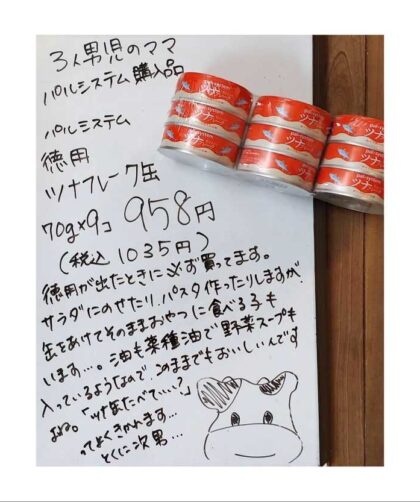 3人男児のママ
パルシステム購入品
パルシステム
徳用
ツナフレーク缶
70g×9コ 958円
(税込 1035円)
徳用が出たときに必ず買ってます。
サラダにのせたり、パスタ作ったりしますが
缶をあけてそのままおやつに食べる子も
います…。油も菜種油で野菜スープも
入っているようなので、このままでもおいしいんです
よね。「ツナ缶たべてい……?」
ってよくきかれます…
とくに次男…
pal*system
ツナ
ツナ
ツナ